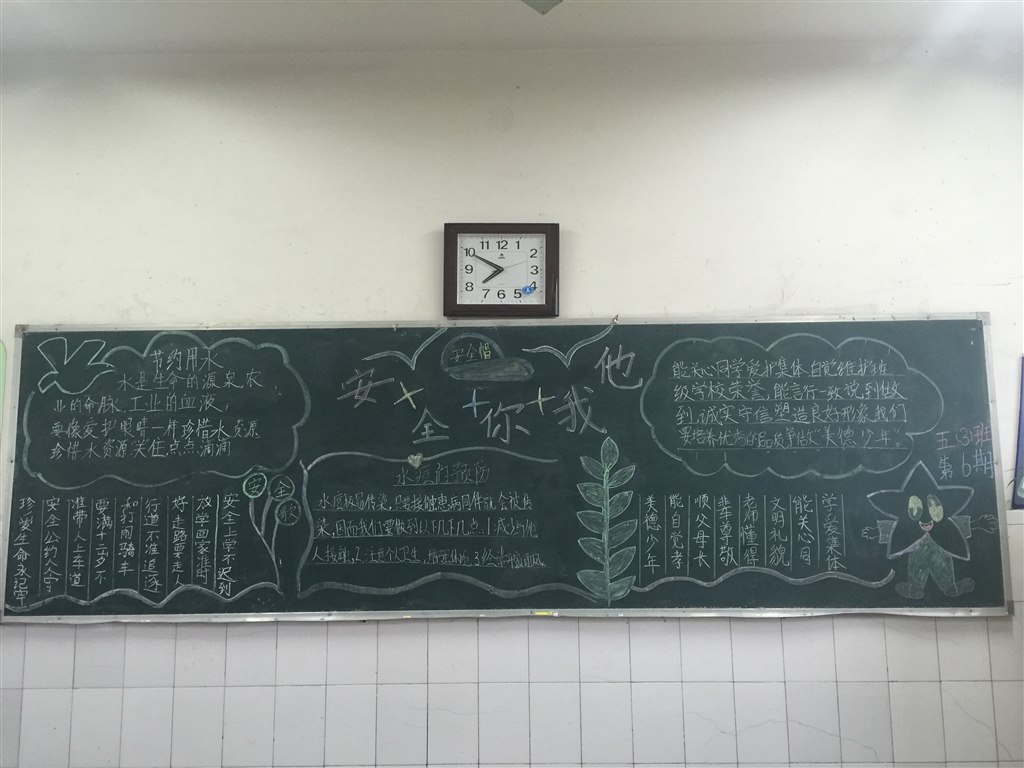 11 12 1
10 2
9 3
8 4
7 6 5
安全帽
安 + 全 + 你 + 我 他
节约用水
水是生命的源泉,农
业的命脉,工业的血液,
要像爱护眼睛一样珍惜水资源
珍惜水资源关住点点滴滴
安全歌
安全上学不迟到
放学回家准时
好走路要走人
行道不准追逐
和打闹骑车
要满十二岁不
准带人上车道
安全公约人人守
珍爱生命永记牢
水痘的预防
水痘极易传染,只要接触患病同伴就会被传
染,因而我们要做到以下几点:1.减少与他
人接触,2.注意个人卫生,
能关心同学爱护集体自觉维护班
级学校荣誉,能言行一致说到做
到,诚实守信塑造良好形象我们
要培养优秀的品质争做“美德少年”
学会爱集体
能关心同
文明礼貌
老师懂得
辈尊敬
顺父母长
能自觉孝
美德少年
五(3)班
第6期